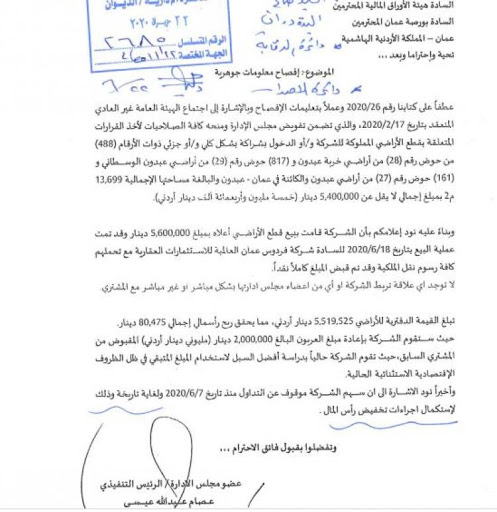 السادة هيئة الأوراق المالية المحترمين
السادة بورصة عمان المحترمين
عمان – المملكة الأردنية الهاشمية
تحية واحتراما وبعد ...
الديوان
٢٢
٢٠٢٠
الرقم المتسلسل ٢٦٨٥
الجهة المختصة
الموضوع: إفصاح معلومات جوهرية
عطفاً على كتابنا رقم 2020/26 وعملاً بتعليمات الإفصاح وبالإشارة إلى اجتماع الهيئة العامة غير العادي
المنعقد بتاريخ 2020/2/17، والذي تضمن تفويض مجلس الإدارة ومنحه كافة الصلاحيات لأخذ القرارات
المتعلقة بقطع الأراضي المملوكة للشركة و/أو الدخول بشراكة بشكل كلي و/أو جزئي ذوات الأرقام (488)
من حوض رقم (28) من أراضي خربة عبدون و (817) حوض رقم (29) من أراضي عبدون الوسطاني و
(161) حوض رقم (27) من أراضي عبدون والكائنة في عمان - عبدون والبالغة مساحتها الإجمالية 13,699
م2 بمبلغ إجمالي لا يقل عن 5,400,000 دينار (خمسة مليون وأربعمائة ألف دينار أردني).
وبناءً عليه نود إعلامكم بأن الشركة قامت ببيع قطع الأراضي أعلاه بمبلغ 5,600,000 دينار وقد تمت
عملية البيع بتاريخ 2020/6/18 للسادة شركة فردوس عمان العالمية للاستثمارات العقارية مع تحملهم
كافة رسوم نقل الملكية وقد تم قبض المبلغ كاملاً نقداً.
لا توجد اي علاقة تربط الشركة او أي من اعضاء مجلس ادارتها بشكل مباشر او غير مباشر مع المشتري.
تبلغ القيمة الدفترية للأراضي 5,519,525 دينار أردني، مما يحقق ربح رأسمالي إجمالي 80,475 دينار.
حيث ستقوم الشركة بإعادة مبلغ العربون البالغ 2,000,000 دينار (مليوني دينار أردني) المقبوض من
المشتري السابق، حيث تقوم الشركة حالياً بدراسة أفضل السبل لاستخدام المبلغ المتبقي في ظل الظروف
الإقتصادية الاستثنائية الحالية.
وأخيراً نود الاشارة الى ان سهم الشركة موقوف عن التداول منذ تاريخ 2020/6/7 ولغاية تاريخة وذلك
لإستكمال اجراءات تخفيض رأس المال .
وتفضلوا بقبول فائق الاحترام ...
عضو مجلس الادارة/ الرئيس التنفيذي
عصام عبدالله عيسى